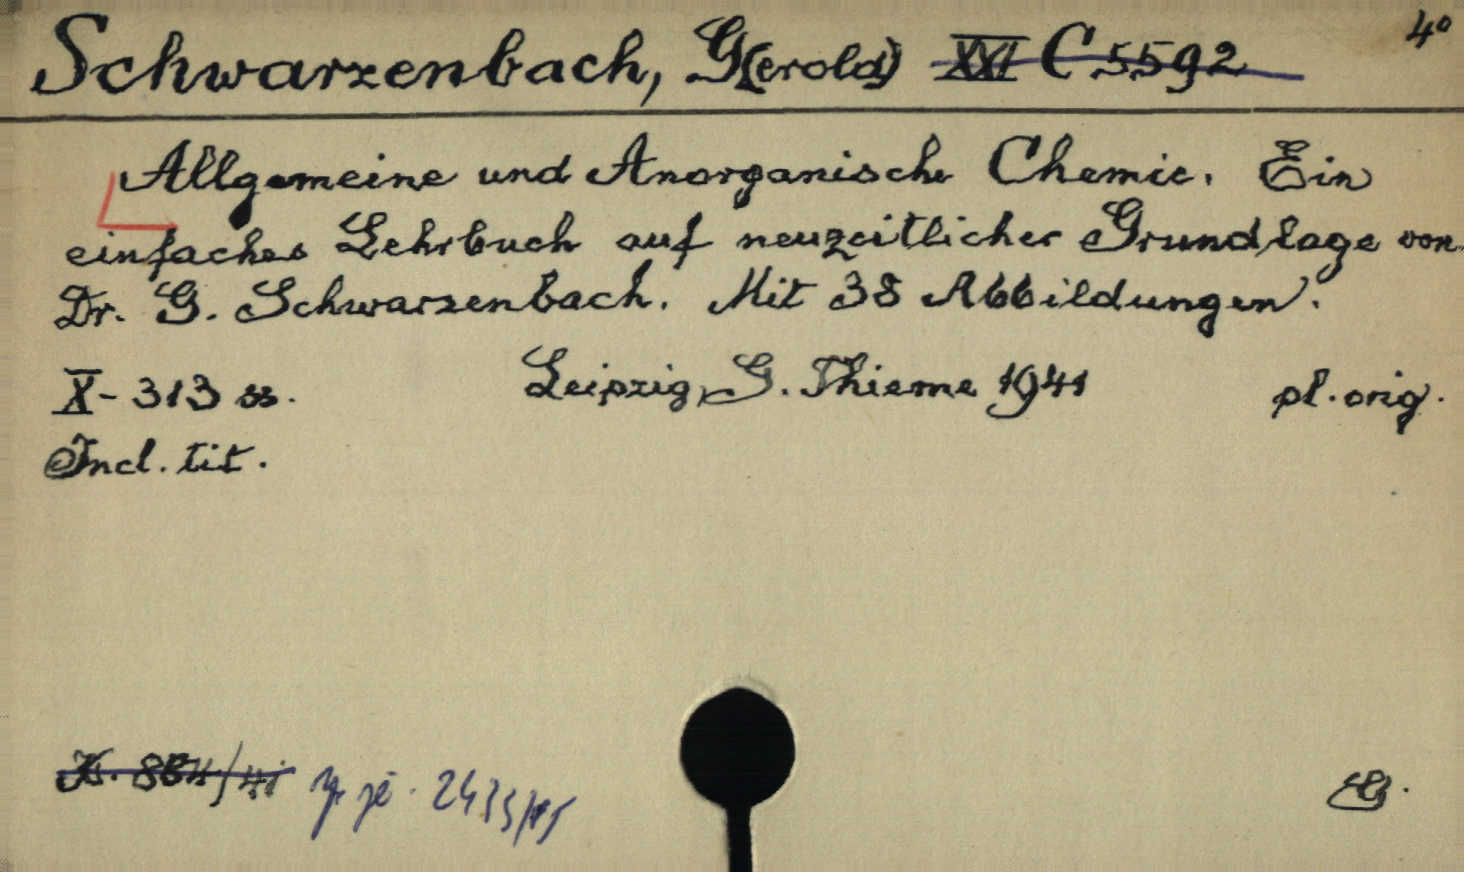 Schwarzenbach, G(erold) XXI C 5592 4°
Allgemeine und Anorganische Chemie. Ein
einfaches Lehrbuch auf neuzeitlicher Grundlage von
Dr. G. Schwarzenbach. Mit 38 Abbildungen.
X - 313 ss. Leipzig, G. Thieme 1941 pl. orig.
Incl. tit.